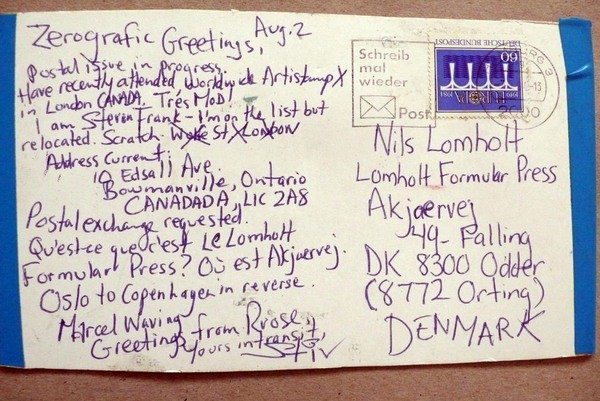 Zerografic Greetings, Aug. 2
Postal issue in progress.
Have recently attended Worldwide Artistamp X
in London CANADA. Très MoD!
I am Steven Frank - I'm on the list but
relocated. Scratch Woke St X London
Address Current:
10 Edsall Ave.
Bowmanville, Ontario
CANADADA, L1C 2A8
Postal exchange requested.
Qu'est-ce que c'est Le Lomholt
Formular Press? Où est Akjaervej.
Oslo to Copenhagen in reverse.
Marcel Waving
Greetings from Rrose,
Yours in transit,
Schreib
mal
wieder
Post
DEUTSCHE BUNDESPOST
60
EUROPA
Nils Lomholt
Lomholt Formular Press
Akjaervej
49- Falling
DK 8300 Odder
(8772 Orting)
DENMARK